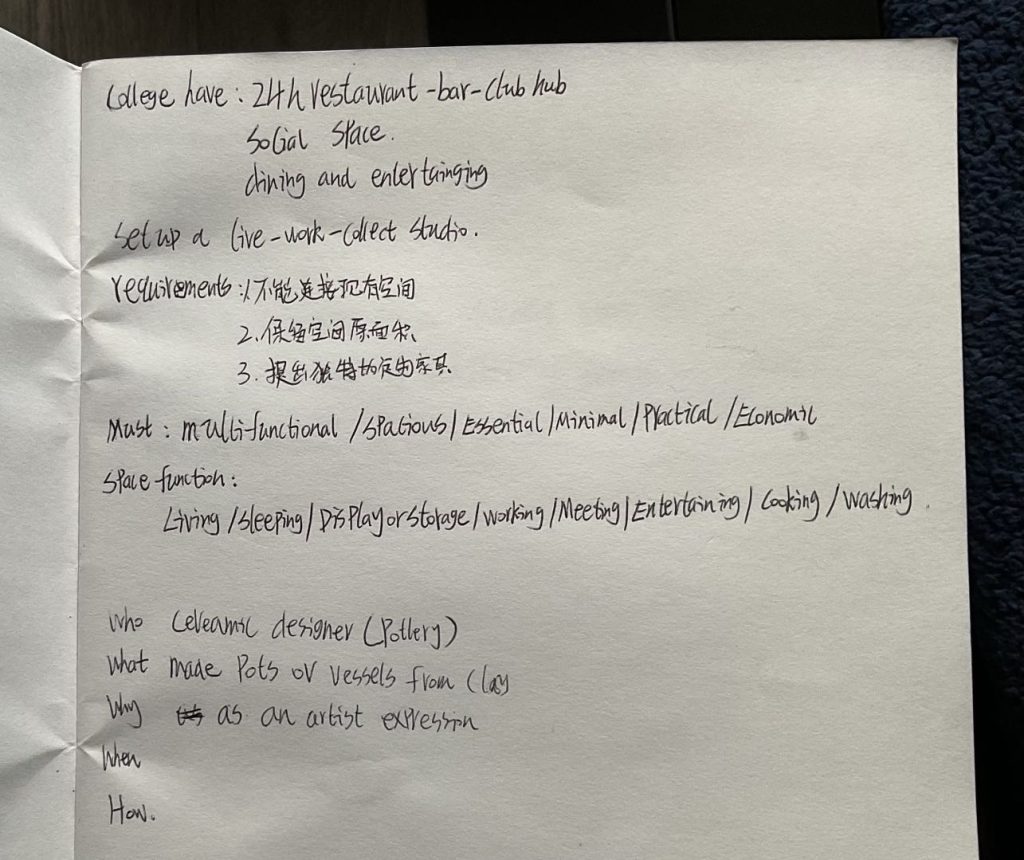 College have : 24h restaurant -bar-club hub
Social space.
dining and entertainging
set up a live-work-collect studio.
requirements : 1.不能连接现有空间
2.保留空间原面积
3.提出独特的定制家具
Must : multi-functional /spacious/Essential/Minimal/Practical /Economic
Space function :
Living /sleeping/Display or storage/working/Meeting/Entertaining/Cooking/washing.
Who cereamic designer (Pottery)
What made Pots or vessels from clay
Why as an artist expression
When
How.